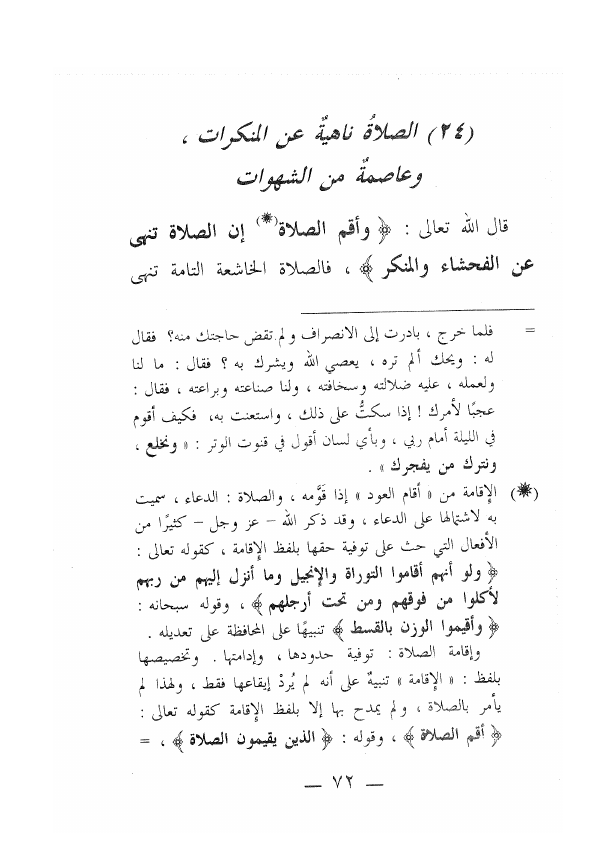 (٢٤) الصلاةُ ناهيةٌ عن المنكرات ،
وعاصمةٌ من الشهوات
قال الله تعالى : ﴿ وأقم الصلاة(*) إن الصلاة تنهى
عن الفحشاء والمنكر ﴾ ، فالصلاة الخاشعة التامة تنهى
= فلما خرج ، بادرت إلى الانصراف ولم تقض حاجتك منه؟ فقال
له : ويحك ألم تره ، يعصي الله ويشرك به ؟ فقال : ما لنا
ولعمله ، عليه ضلالته وسخافته ، ولنا صناعته وبراعته ، فقال :
عجبًا لأمرك ! إذا سكتُّ على ذلك ، واستعنت به، فكيف أقوم
في الليلة أمام ربي ، وبأي لسان أقول في قنوت الوتر : « ونخلع ،
ونترك من يفجرك » .
(*) الإقامة من « أقام العود » إذا قَوَّمه ، والصلاة : الدعاء ، سميت
به لاشتمالها على الدعاء ، وقد ذكر الله – عز وجل – كثيرًا من
الأفعال التي حث على توفية حقها بلفظ الإقامة ، كقوله تعالى :
﴿ ولو أنهم أقاموا التوراة والإنجيل وما أنزل إليهم من ربهم
لأكلوا من فوقهم ومن تحت أرجلهم ﴾ ، وقوله سبحانه :
﴿ وأقيموا الوزن بالقسط ﴾ تنبيهًا على المحافظة على تعديله .
وإقامة الصلاة : توفية حدودها ، وإدامتها . وتخصيصها
بلفظ : « الإقامة » تنبيهٌ على أنه لم يُردْ إيقاعها فقط ، ولهذا لم
يأمر بالصلاة ، ولم يمدح بها إلا بلفظ الإقامة كقوله تعالى :
﴿ أقم الصلاة ﴾ ، وقوله : ﴿ الذين يقيمون الصلاة ﴾ ، =
– ٧٢ –